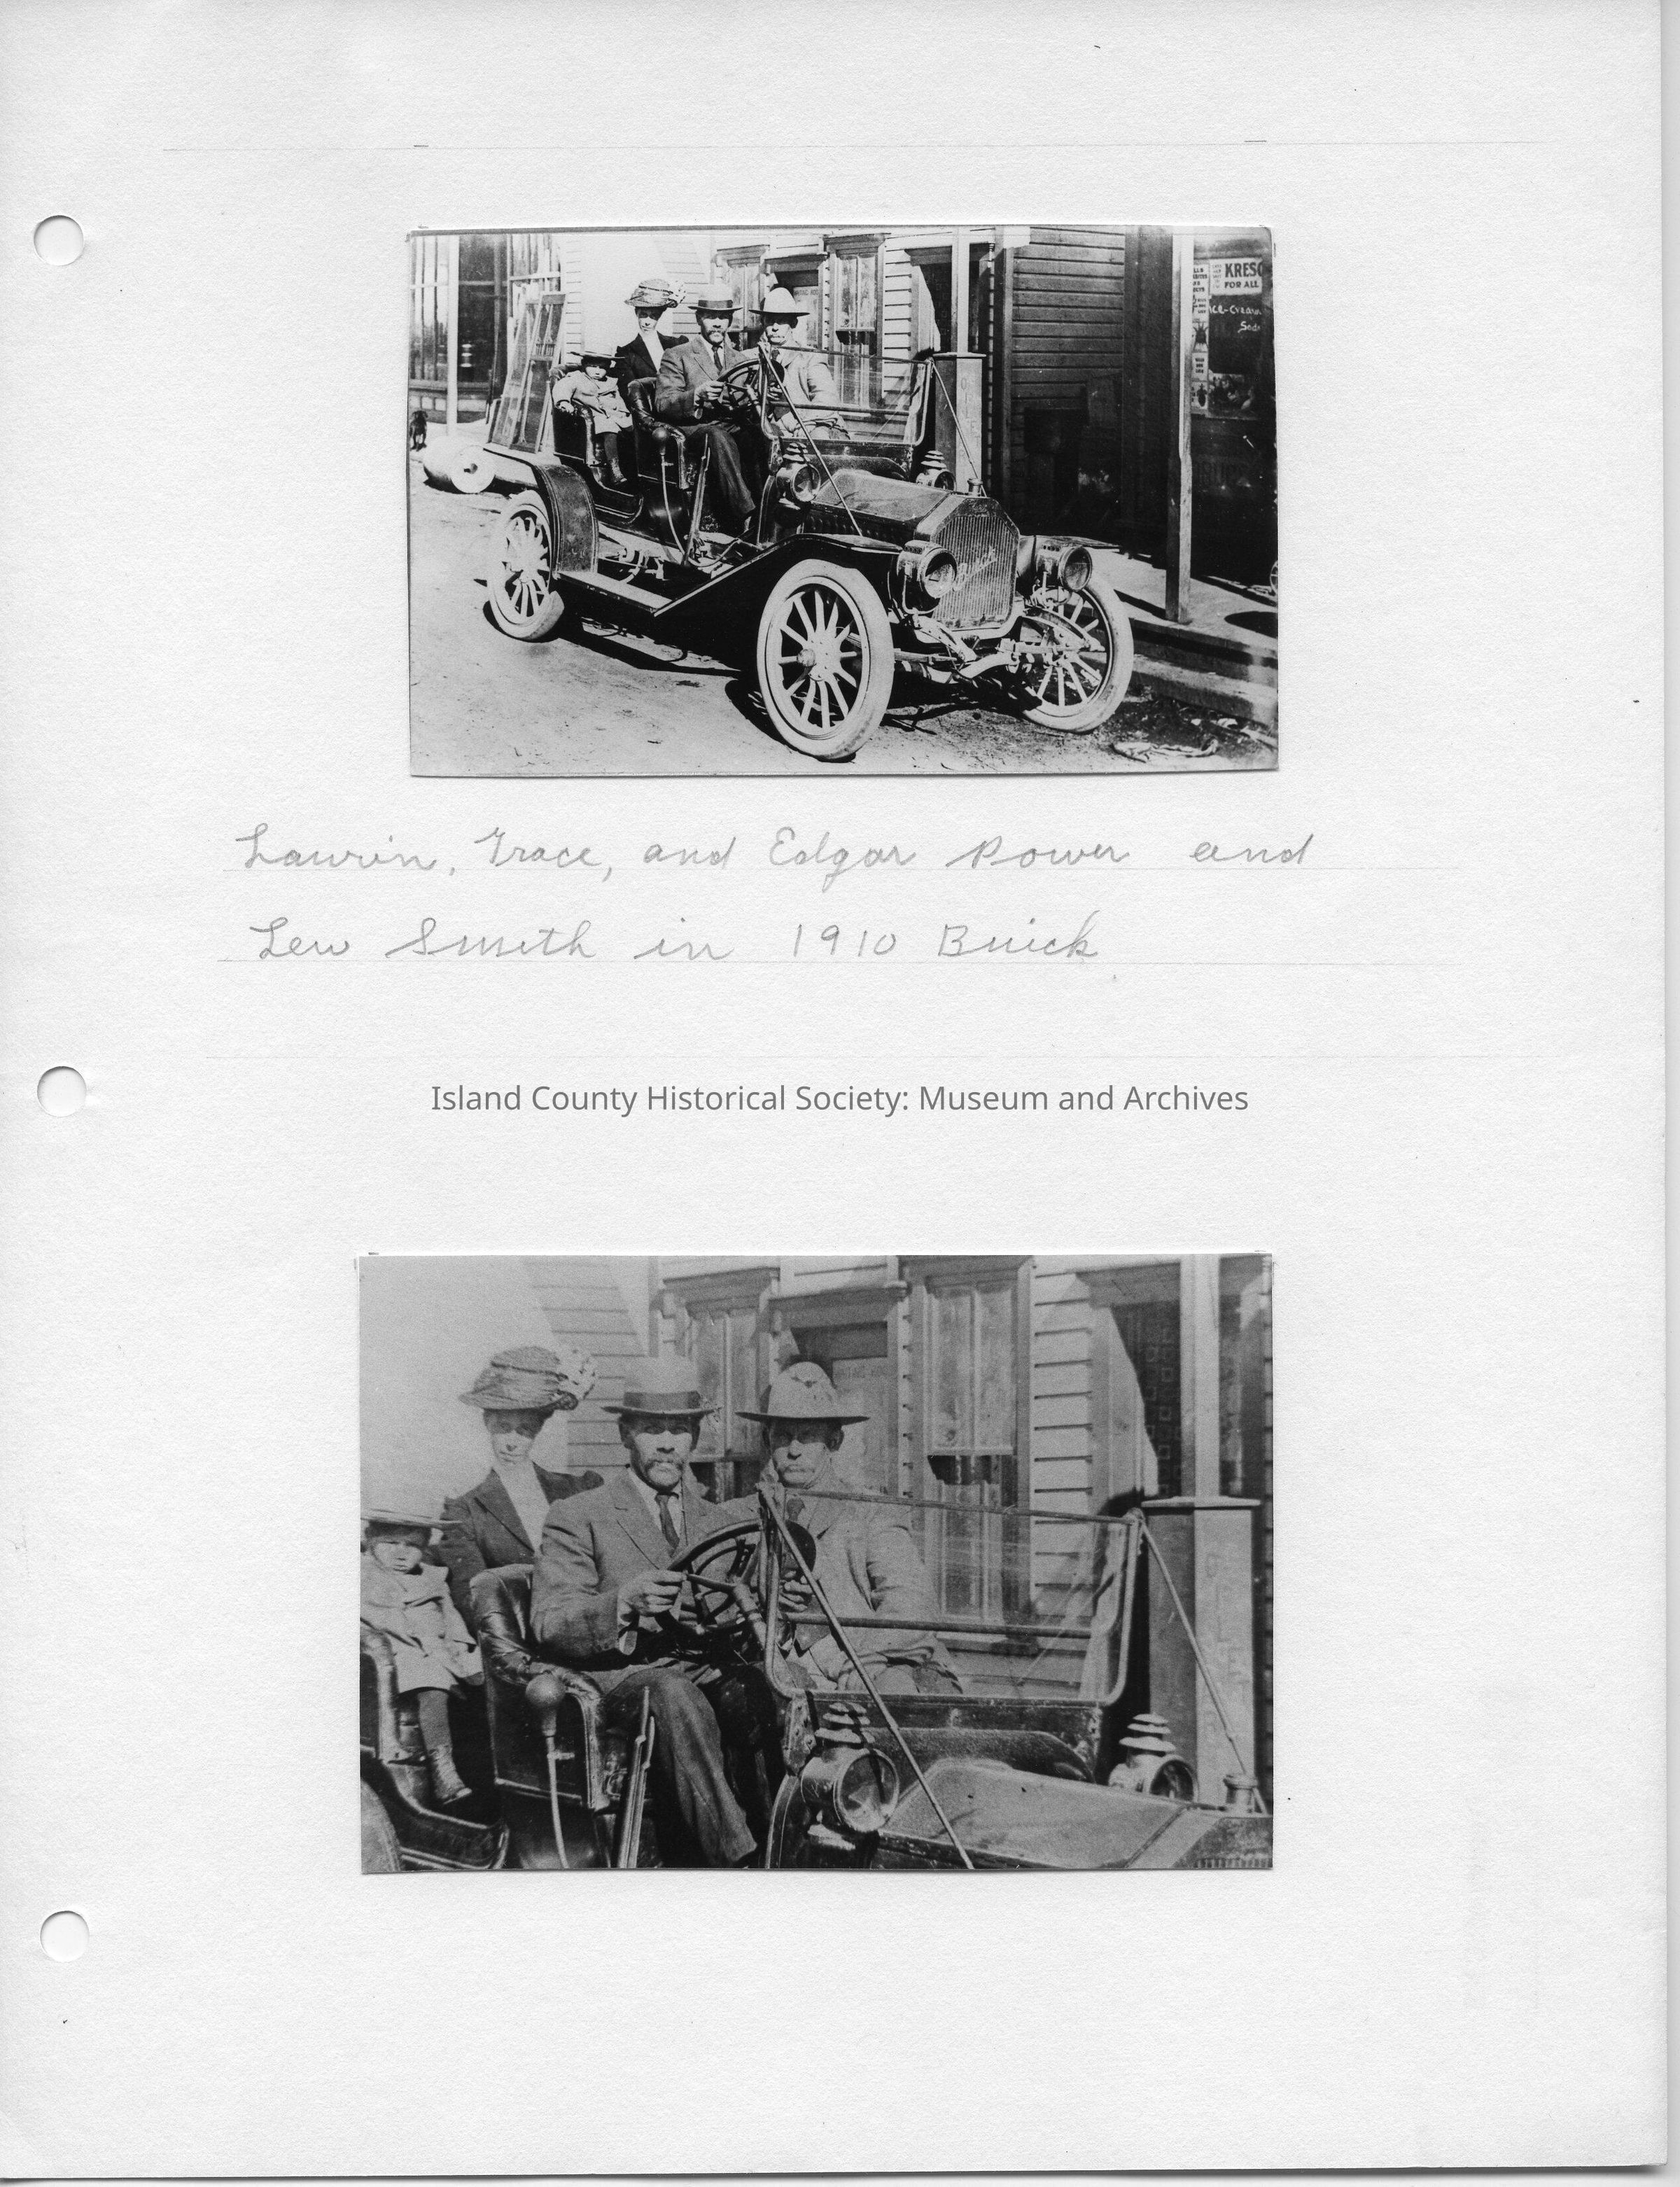 KRESO
FOR ALL
Ice-Cream
Soda
Buick
Lawrin, Grace, and Edgar Power and
Lew Smith in 1910 Buick
Island County Historical Society: Museum and Archives